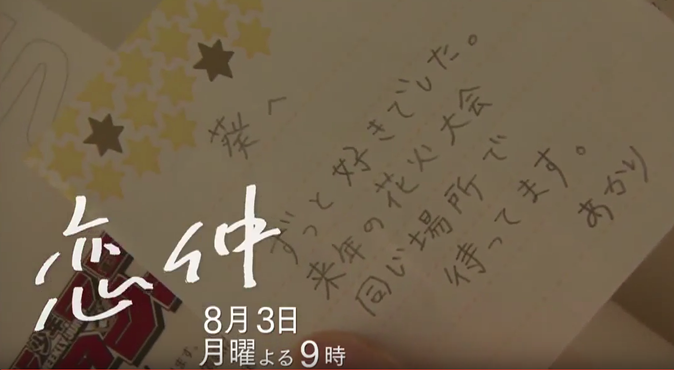 葵へ
ずっと好きでした。
来年の花火大会
同じ場所で
待ってます。
あかり
恋仲
8月3日
月曜よる9時